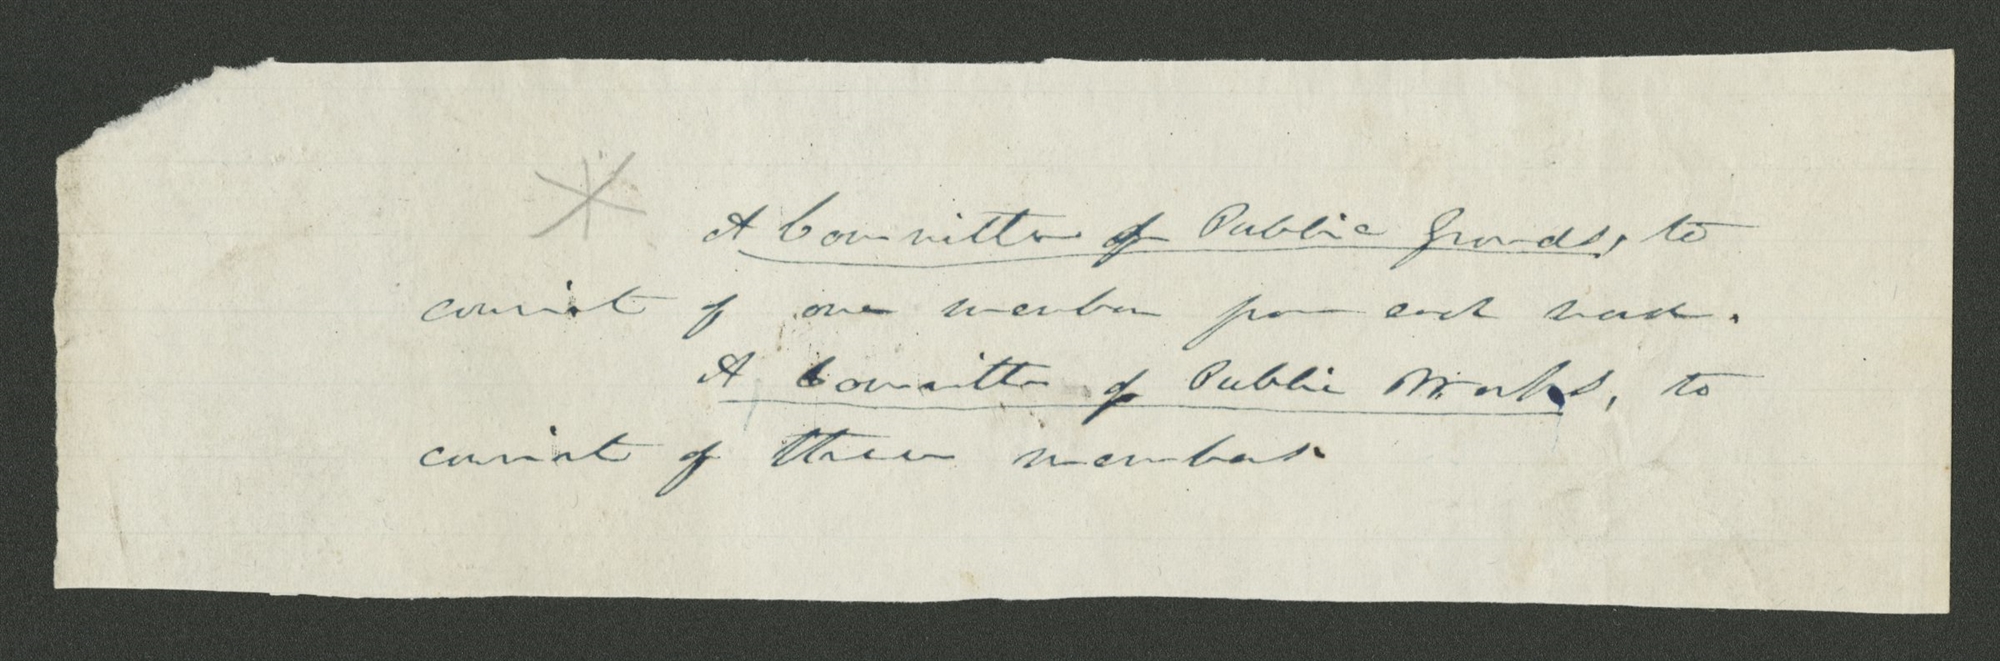 A Committee of Public Grounds, to
consist of one member from each ward.
A Committee of Public Works, to
consist of three members.